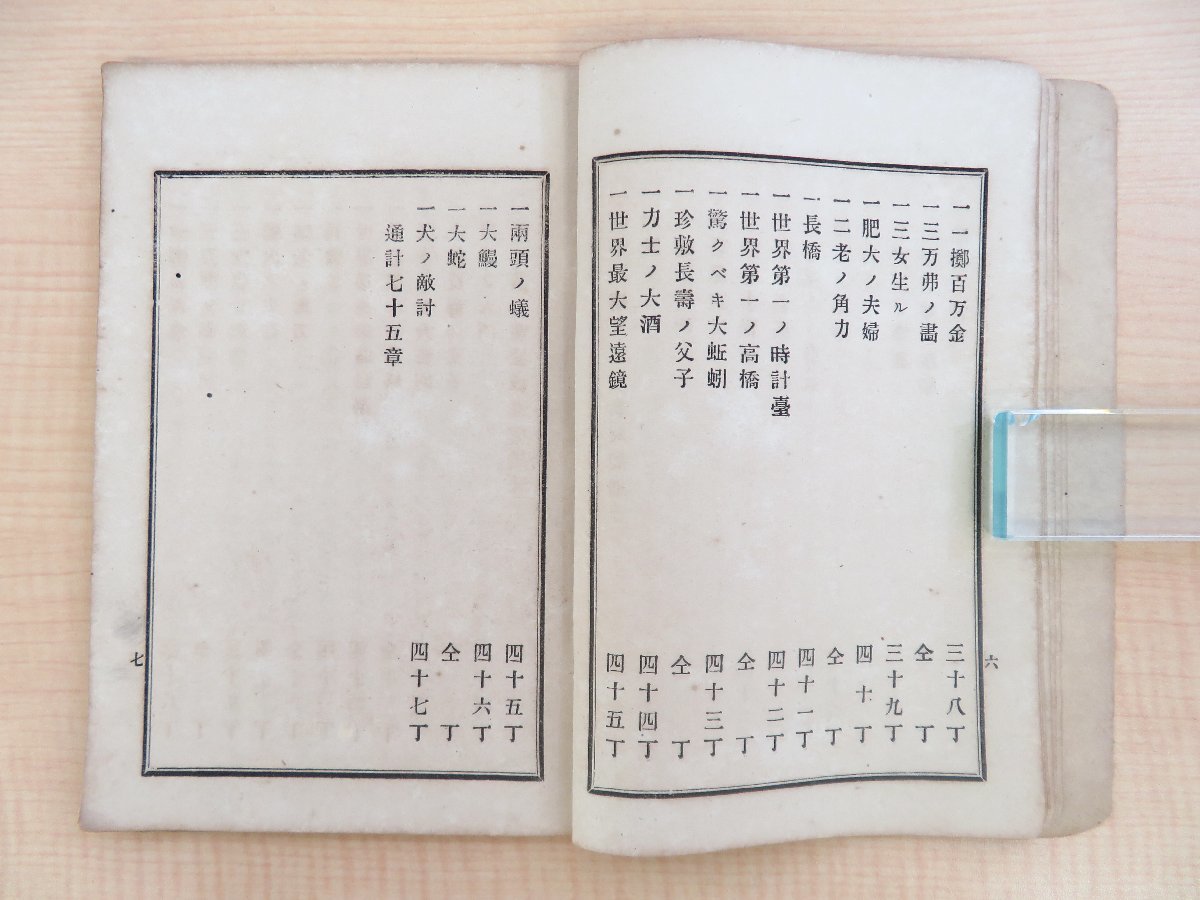 一一擲百万金 三十八丁
一三万弗ノ畵 仝丁
一三女生ル 三十九丁
一肥大ノ夫婦 四十丁
一二老ノ角力 仝丁
一長橋 四十一丁
一世界第一ノ時計臺 四十二丁
一世界第一ノ高橋 仝丁
一驚クベキ大蚯蚓 四十三丁
一珍敷長壽ノ父子 仝丁
一力士ノ大酒 四十四丁
一世界最大望遠鏡 四十五丁
六
一兩頭ノ蟻 四十五丁
一大鰻 四十六丁
一大蛇 仝丁
一犬ノ敵討 四十七丁
通計七十五章
七